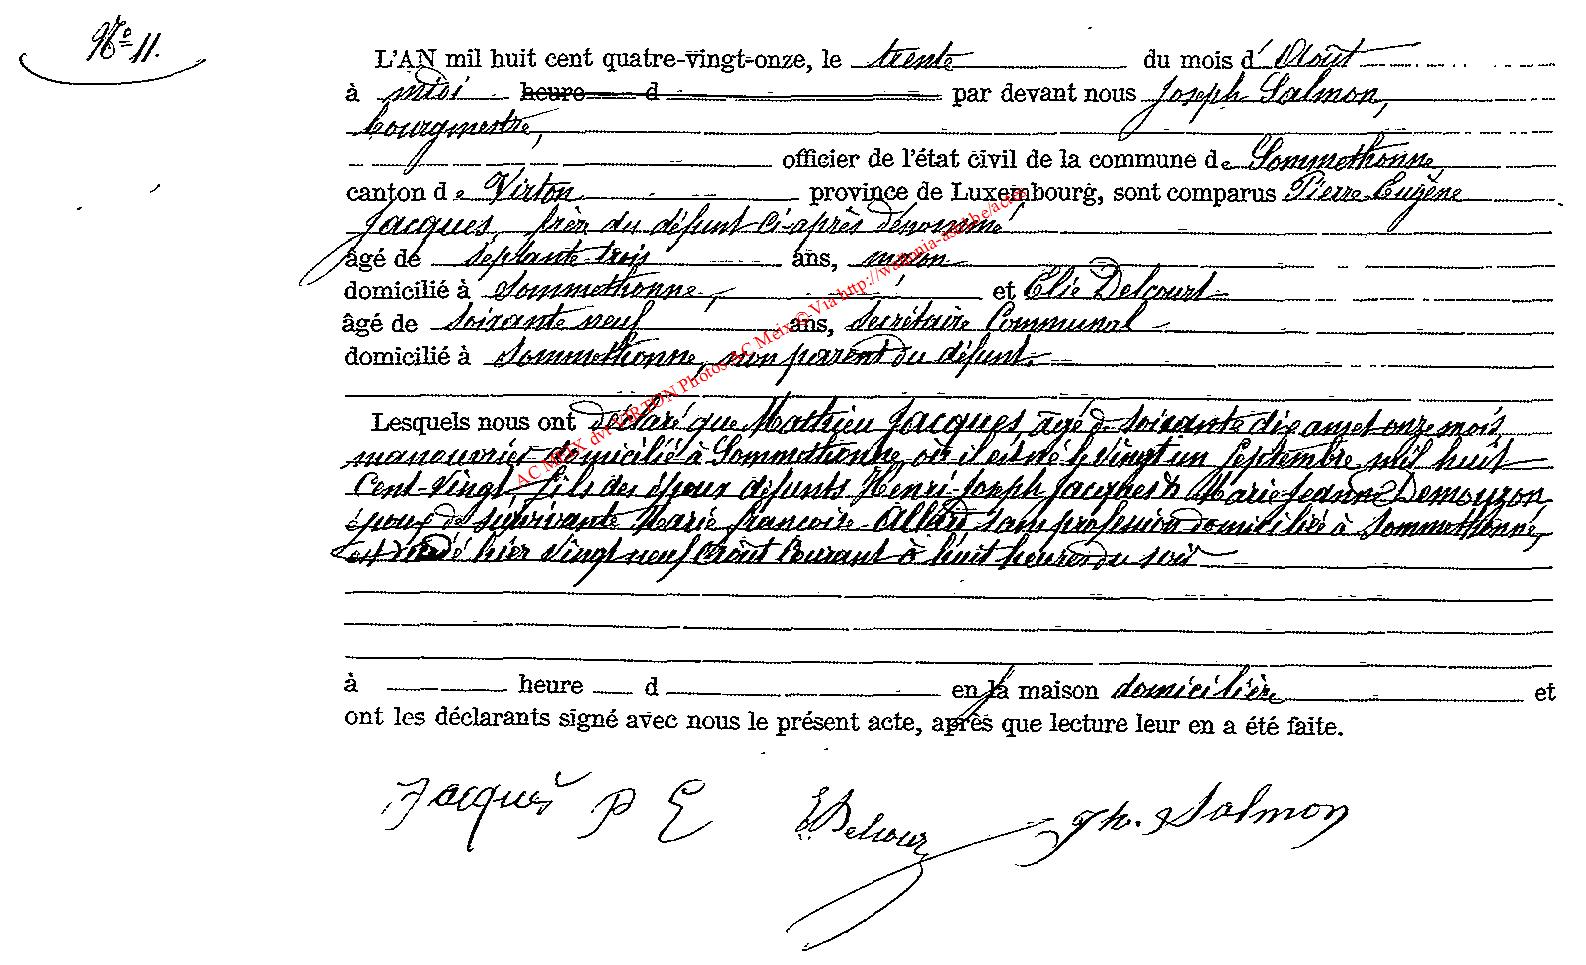 No 11.
L'AN mil huit cent quatre-vingt-onze, le trente du mois d'Août
à midi heure d par devant nous Joseph Salmon,
bourgmestre,
officier de l'état civil de la commune de Sommethonne,
canton de Virton province de Luxembourg, sont comparus Pierre Eugène
Jacques, frère du défunt ci-après dénommé
âgé de septante trois ans, maçon
domicilié à Sommethonne, et Elie Delcourt
âgé de soixante neuf ans, secrétaire Communal
domicilié à Sommethonne, non parent du défunt.
Lesquels nous ont déclaré que Mathieu Jacques, âgé de soixante dix ans et onze mois,
manouvrier domicilié à Sommethonne, où il est né le vingt un septembre mil huit
cent-vingt, fils des époux défunts Henri-Joseph Jacques & Marie Jeanne Demouzon
époux de survivante Marie françoise Allard, sans profession domiciliée à Sommethonne,
est décédé hier vingt neuf août courant à huit heures du soir
à heure d en la maison domicilière et
ont les déclarants signé avec nous le présent acte, après que lecture leur en a été faite.
Jacques P E E. Delcour Jh. Salmon
AC MEIX dvt VIRTON Photos AC Meix © Via http://wallonia-asbl.be/actes